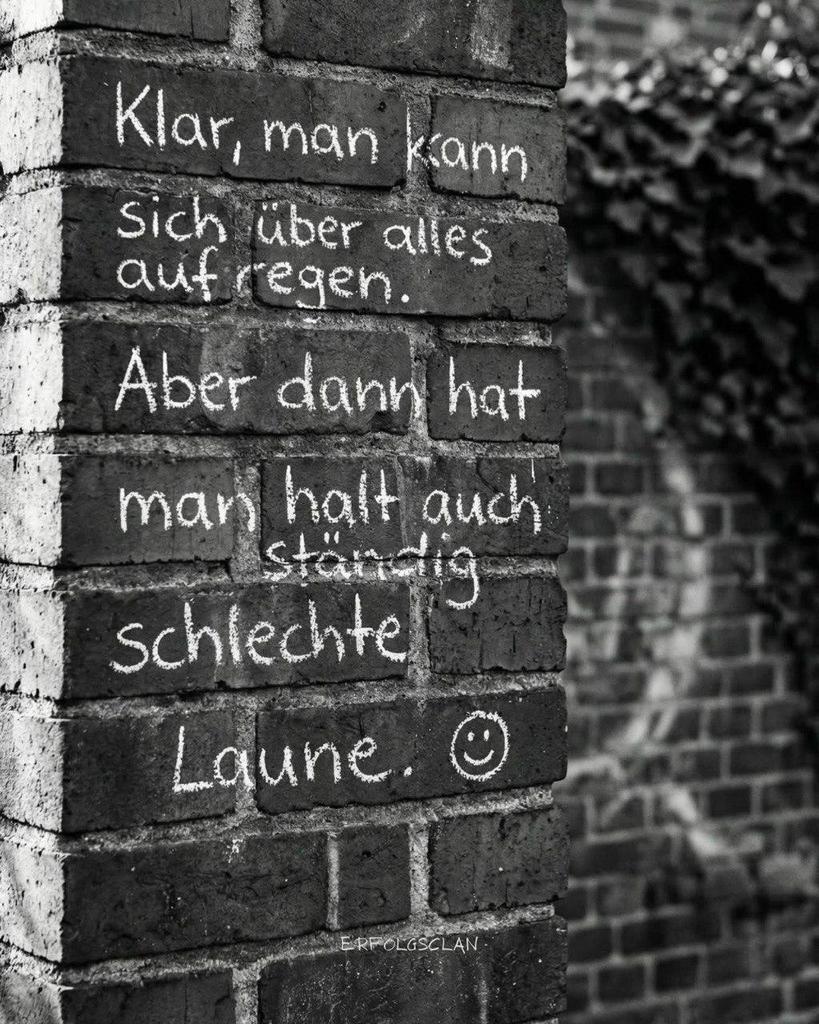 Klar, man kann
sich über alles
aufregen.
Aber dann hat
man halt auch
ständig
schlechte
Laune. ☺
ERFOLGSCLAN